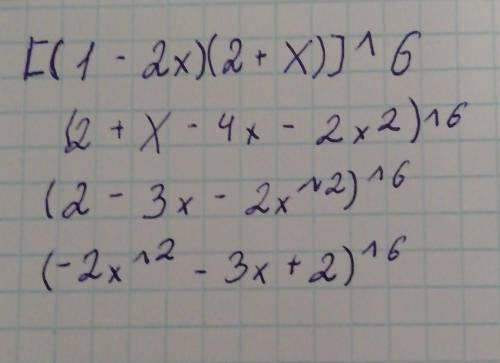 [(1 - 2x)(2 + x)]^6
(2 + x - 4x - 2x^2)^6
(2 - 3x - 2x^2)^6
(-2x^2 - 3x + 2)^6